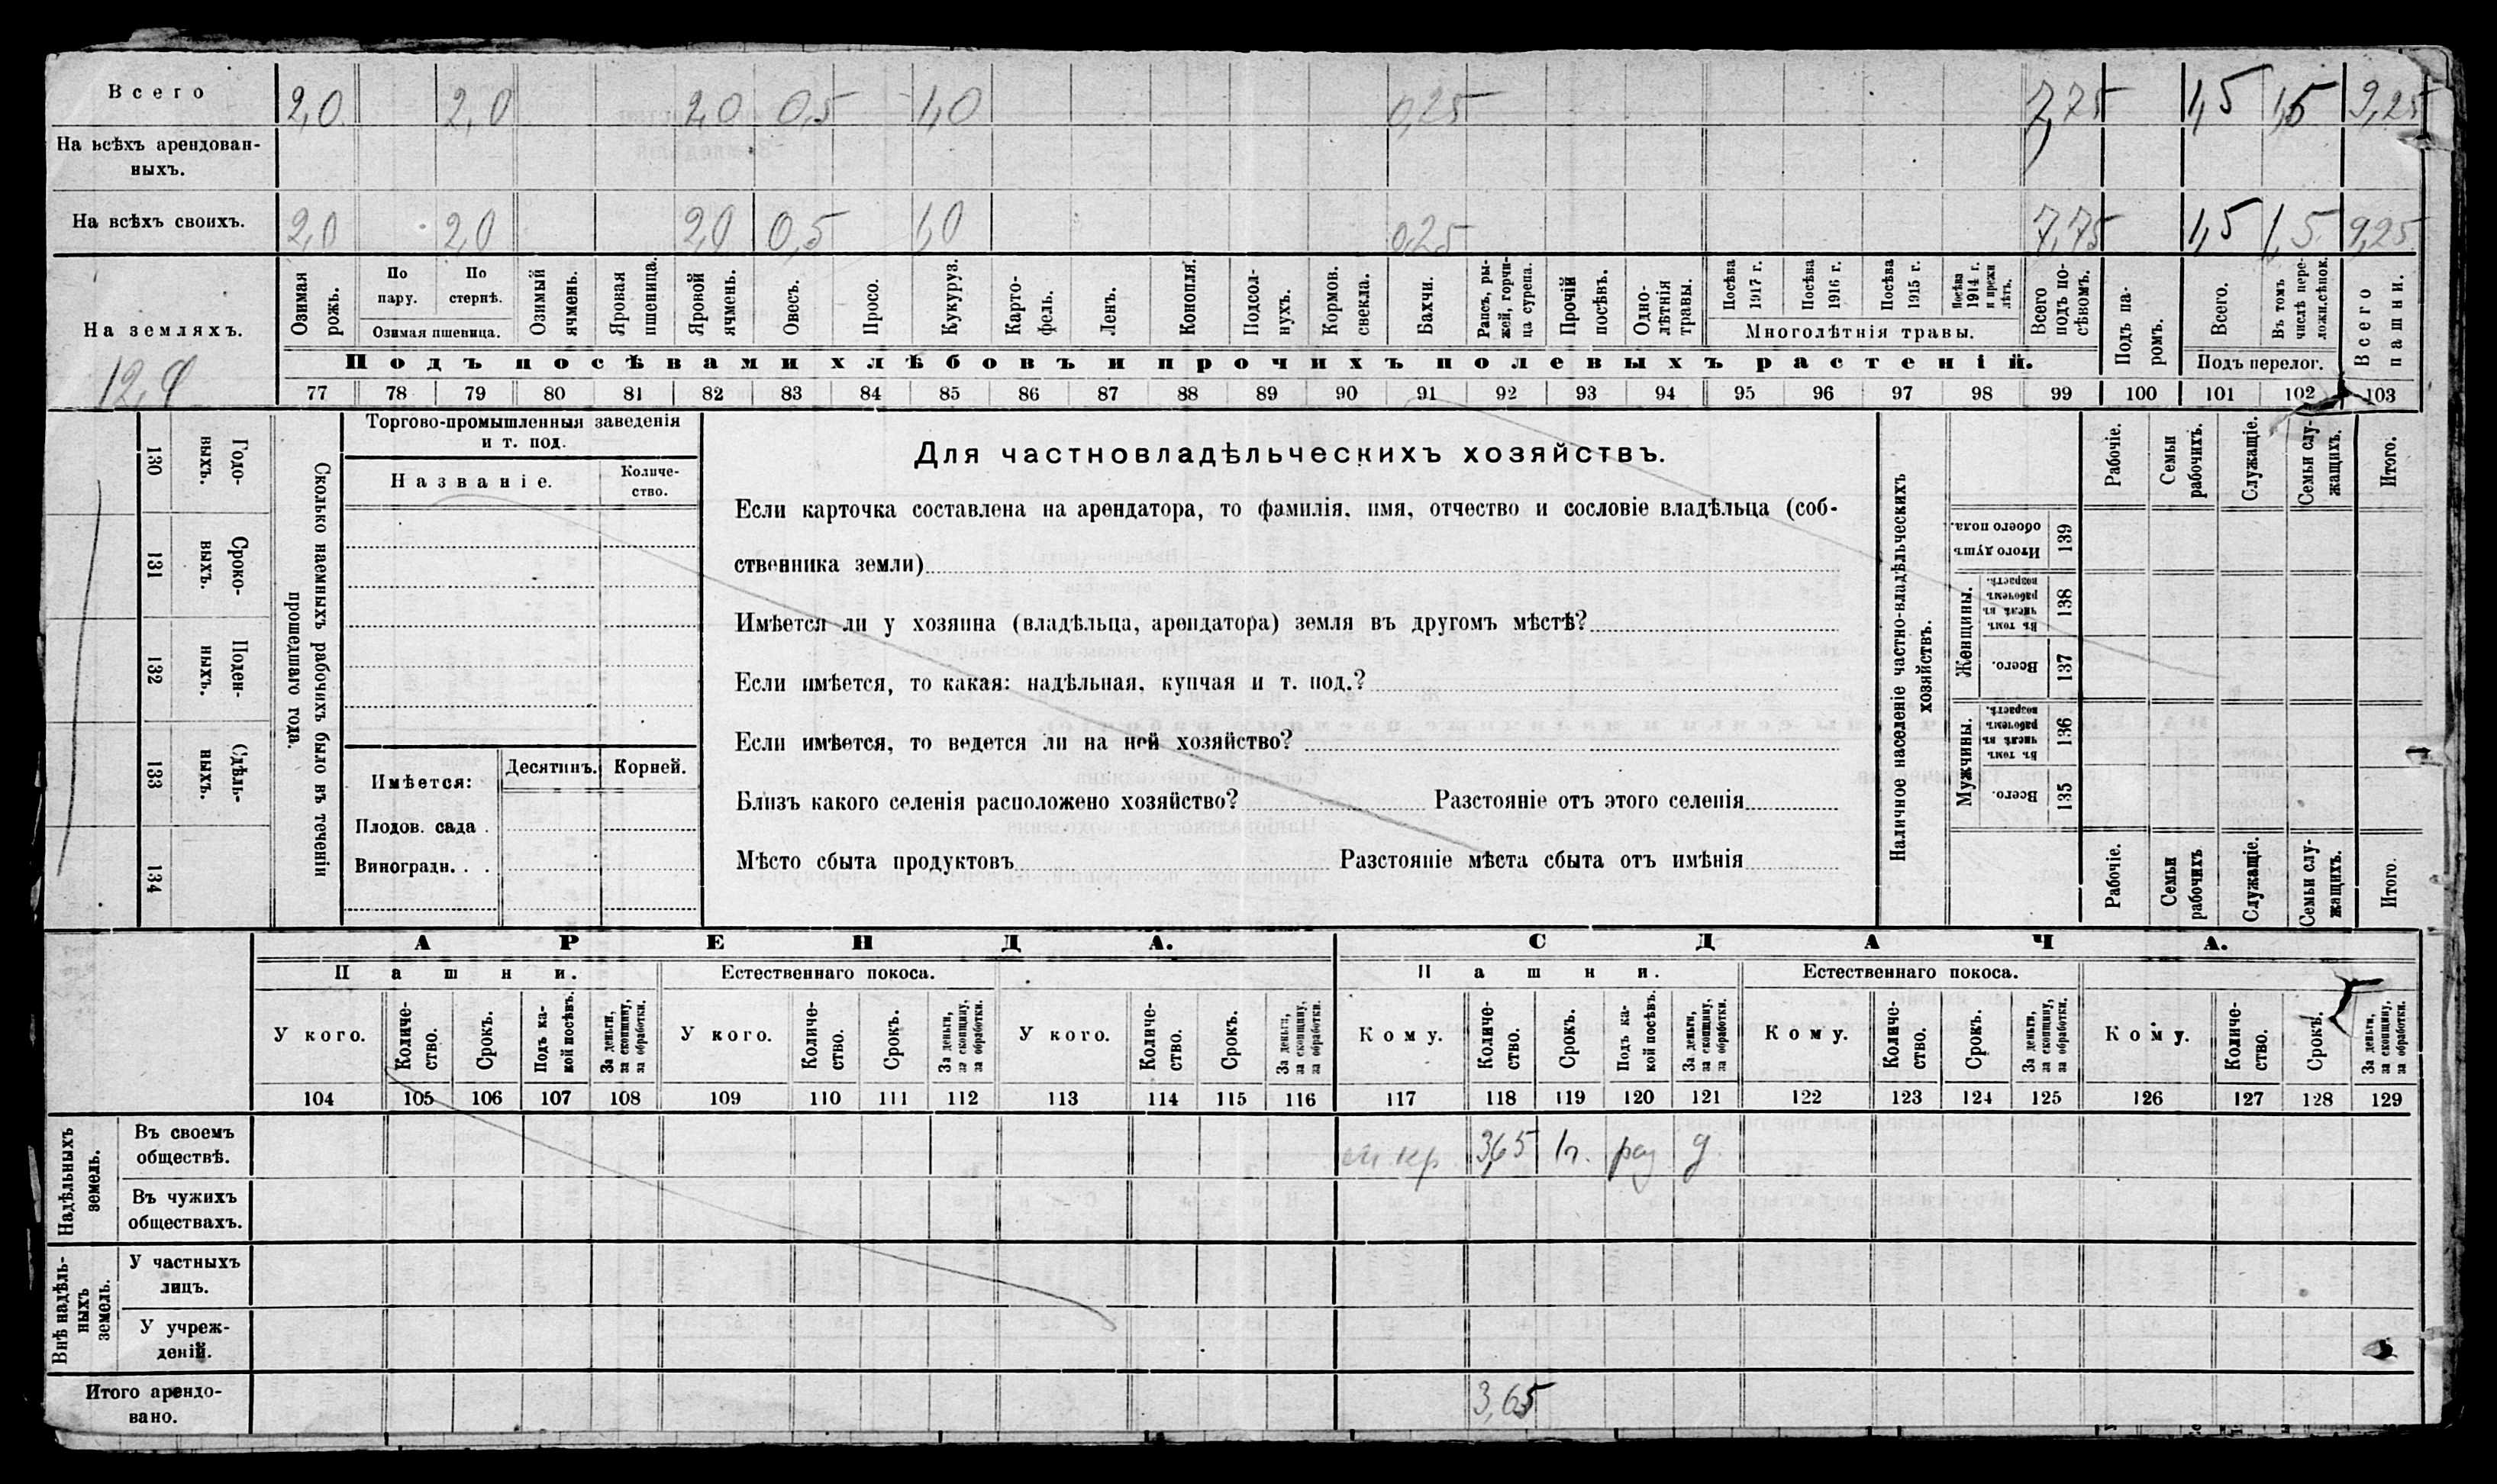 Всего 2,0 2,0 2,0 0,5 1,0 0,25 7,75 1,5 1,5 9,25
На всѣхъ арендован-
ныхъ.
На всѣхъ своихъ. 2,0 2,0 2,0 0,5 1,0 0,25 7,75 1,5 1,5 9,25
На земляхъ.
Озимая рожь.
По пару.
По стернѣ.
Озимая пшеница.
Озимый ячмень.
Яровая пшеница.
Яровой ячмень.
Овесъ.
Просо.
Кукуруз.
Карто-
фель.
Ленъ.
Конопля.
Подсол-
нухъ.
Кормов. свекла.
Бахчи.
Рапсъ, ры-
жей, горчи-
ца сурепа.
Прочій посѣвъ.
Одно-
лѣтнія травы.
Посѣва 1917 г.
Посѣва 1916 г.
Посѣва 1915 г.
Посѣва 1914 г. и прежн лѣтъ.
Многолѣтнія травы.
Всего подъ по-
сѣвомъ.
Подъ па-
ромъ.
Всего.
Въ томъ числѣ пере-
ложн.сѣнок.
Подъ перелог.
Всего пашни.
Подъ посѣвами хлѣбовъ и прочихъ полевыхъ растеній.
77 78 79 80 81 82 83 84 85 86 87 88 89 90 91 92 93 94 95 96 97 98 99 100 101 102 103
130 Годо-
выхъ.
131 Сроко-
выхъ.
132 Поден-
ныхъ.
133 Сдѣль-
ныхъ.
134
Сколько наемныхъ рабочихъ было въ теченіи
прошедшаго года.
Торгово-промышленныя заведенія
и т. под.
Названіе.
Количе-
ство.
Имѣется: Десятинъ. Корней.
Плодов. сада .
Виноградн. . .
Для частновладѣльческихъ хозяйствъ.
Если карточка составлена на арендатора, то фамилія, имя, отчество и сословіе владѣльца (соб-
ственника земли)
Имѣется ли у хозяина (владѣльца, арендатора) земля въ другомъ мѣстѣ?
Если имѣется, то какая: надѣльная, купчая и т. под.?
Если имѣется, то ведется ли на ней хозяйство?
Близъ какого селенія расположено хозяйство? Разстояніе отъ этого селенія
Мѣсто сбыта продуктовъ Разстояніе мѣста сбыта отъ имѣнія
Наличное населеніе частно-владѣльческихъ
хозяйствъ.
Рабочіе.
Семьи рабочихъ.
Служащіе.
Семьи слу-
жащихъ.
Итого.
Итого душъ обоего пола. 139
Женщины.
Въ томъ числѣ въ рабочемъ возрастѣ. 138
Всего. 137
Мужчины.
Въ томъ числѣ въ рабочемъ возрастѣ. 136
Всего. 135
Рабочіе.
Семьи рабочихъ
Служащіе.
Семьи слу-
жащихъ.
Итого.
АРЕНДА. СДАЧА.
Пашни. Естественнаго покоса. Пашни. Естественнаго покоса.
У кого.
Количе-
ство.
Срокъ.
Подъ ка-
кой посѣвъ.
За деньги, за скопщину, за обработки.
У кого.
Количе-
ство.
Срокъ.
За деньги, за скопщину, за обработки.
У кого.
Количе-
ство.
Срокъ.
За деньги, за скопщину, за обработки.
Кому.
Количе-
ство.
Срокъ.
Подъ ка-
кой посѣвъ.
За деньги, за скопщину, за обработки.
Кому.
Количе-
ство.
Срокъ.
За деньги, за скопщину, за обработки.
Кому.
Количе-
ство.
Срокъ.
За деньги, за скопщину, за обработки.
104 105 106 107 108 109 110 111 112 113 114 115 116 117 118 119 120 121 122 123 124 125 126 127 128 129
Надѣльныхъ земель.
Въ своемъ
обществѣ. 3,65 1 г.
Въ чужихъ
обществахъ.
Внѣ надѣль-
ныхъ земель.
У частныхъ
лицъ.
У учреж-
деній.
Итого арендо-
вано. 3,65